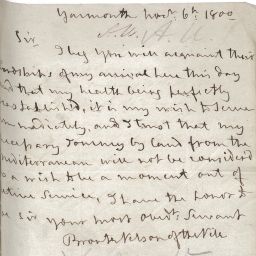 Yarmouth Novr. 6th 1800
Sir
I beg you will acquaint their
Lordships of my arrival here this day
and that my health being perfectly
reestablished, it is my wish to serve
immediately, and I trust that my
necessary Journey by land from the
Mediterranean will not be considered
as a wish to be a moment out of
active Service, I have the honor to
be Sir your most obedt. Servant
Bronte Nelson of the Nile